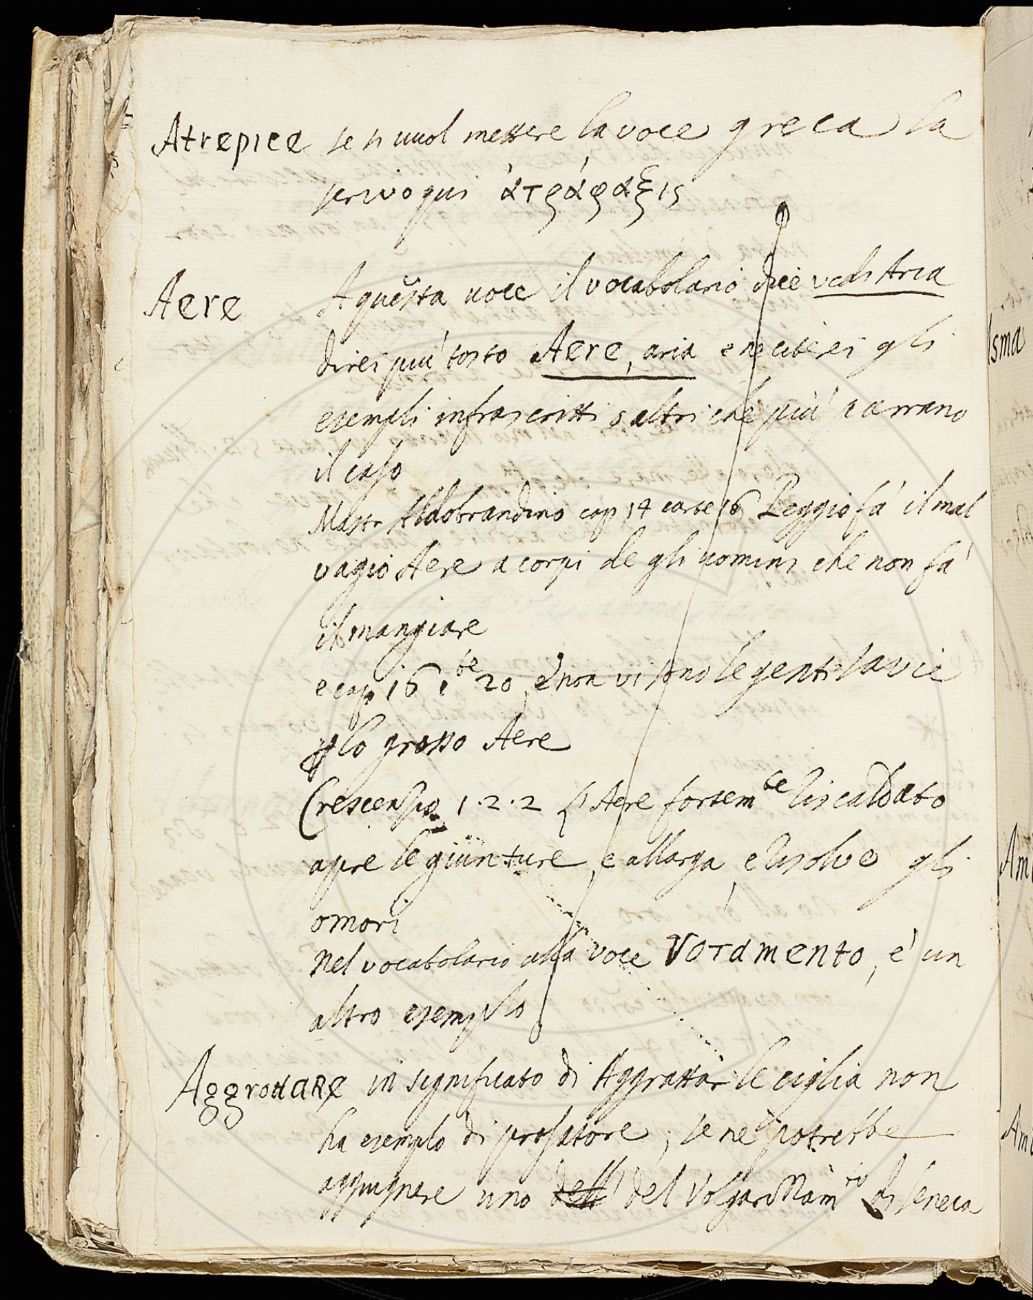 Atrepice se si vuol mettere la voce greca la
scrivo qui ἀτράφαξις
Aere A questa voce il vocabolario dice vedi Aria
direi più tosto Aere, aria e ne citerei gli
esempli infrascritti o altri che più
il caso
Mastr Aldobrandino cap 14 carte 16 Peggio fà il mal
vagio Aere a corpi de gli uomini che non fà
il mangiare
e cap 16 cte 20, e non vi sono le genti savie
lo grosso Aere
Crescenzio 1.2.2 Aere fortemte riscaldato
apre le giunture, e allarga, e risolve gli
omori
Nel vocabolario alla voce Votamento, è un
altro esemplo
Aggrottare in significato di Aggrottar le ciglia non
ha esemplo di prosatore; se ne potrebbe
aggiugnere uno del Volgarizzamto di Seneca
sma
Am
Am